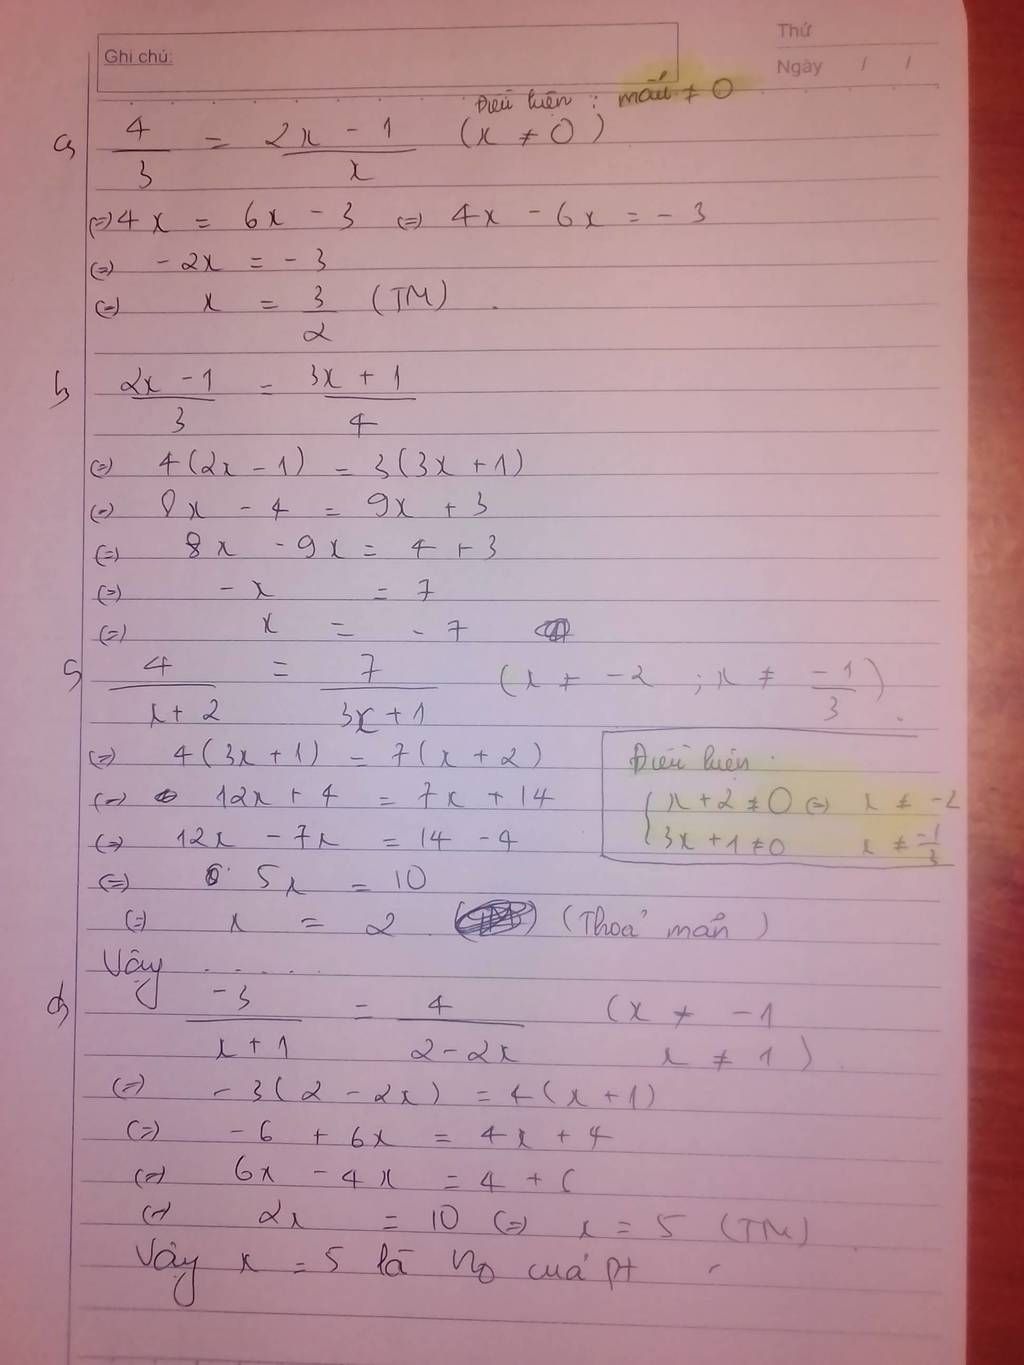 Ghi chú:
Thứ
Ngày / /
Điều kiện : mẫu ≠ 0
a) 4/3 = (2x - 1)/x (x ≠ 0)
(=) 4x = 6x - 3 (=) 4x - 6x = - 3
(=) - 2x = - 3
(=) x = 3/2 (TM)
b) (2x - 1)/3 = (3x + 1)/4
(=) 4(2x - 1) = 3(3x + 1)
(=) 8x - 4 = 9x + 3
(=) 8x - 9x = 4 + 3
(=) - x = 7
(=) x = - 7
c) 4/(x + 2) = 7/(3x + 1) (x ≠ -2 ; x ≠ -1/3)
(=) 4(3x + 1) = 7(x + 2)
(=) 12x + 4 = 7x + 14
(=) 12x - 7x = 14 - 4
(=) 5x = 10
(=) x = 2 (Thoả mãn)
Điều kiện
{ x + 2 ≠ 0 (=) x ≠ -2
3x + 1 ≠ 0 x ≠ -1/3
Vậy .....
d) -3/(x + 1) = 4/(2 - 2x) (x ≠ -1
x ≠ 1)
(=) - 3(2 - 2x) = 4(x + 1)
(=) - 6 + 6x = 4x + 4
(=) 6x - 4x = 4 + 6
(=) 2x = 10 (=) x = 5 (TM)
Vậy x = 5 là No của pt